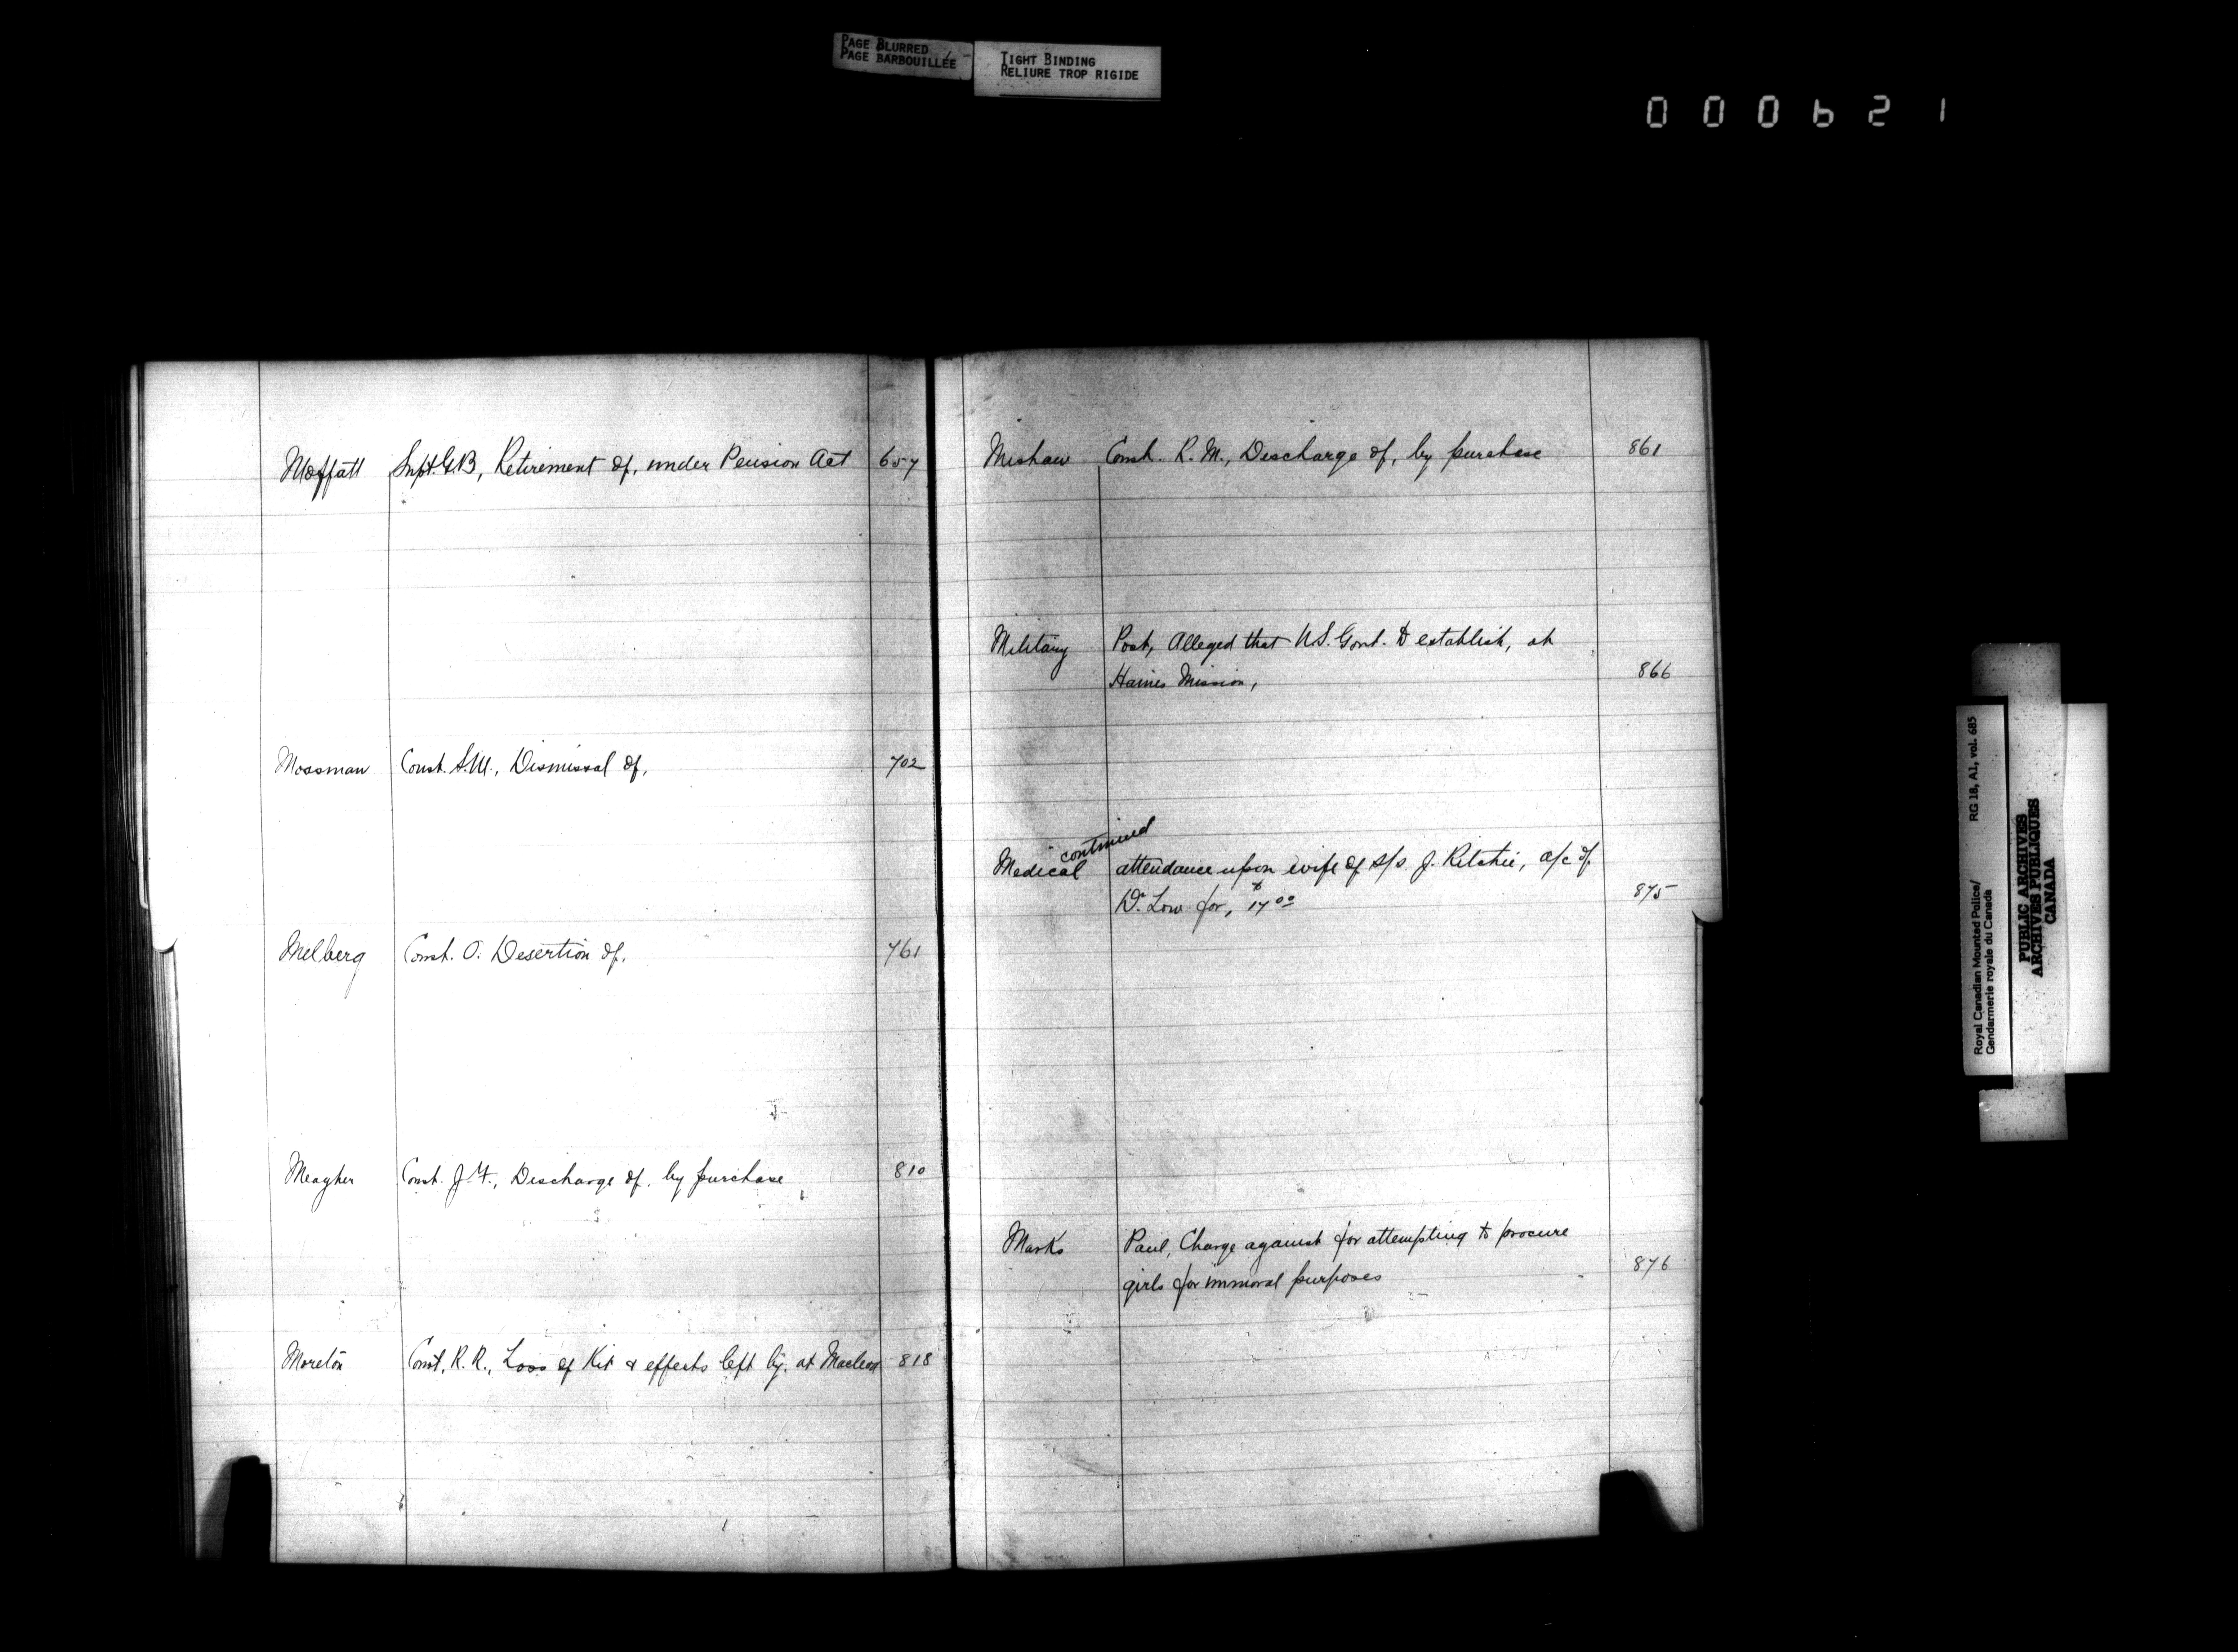 PAGE BLURRED
PAGE BARBOUILLÉE
TIGHT BINDING
RELIURE TROP RIGIDE
000621
Moffatt Supt. G.B, Retirement of, under Pension Act 657
Mossman Const. S.M., Dismissal of, 702
Melberg Const. O. Desertion of, 761
Meagher Const. J.F., Discharge of, by purchase 810
Moreton Const, R.R., Loss of Kit & effects left by, at Macleod 818
Mishaw Const. R.M., Discharge of, by purchase 861
Military Post, Alleged that U.S. Govt. to establish, at
Haines Mission, 866
continued
Medical attendance upon wife of s/s. J. Ritchie, a/c of
Dr Low for, $17.00 875
Marks Paul, Charge against for attempting to procure
girls for immoral purposes 876
Royal Canadian Mounted Police/ RG 18, A1, vol. 685
Gendarmerie royale du Canada
PUBLIC ARCHIVES
ARCHIVES PUBLIQUES
CANADA